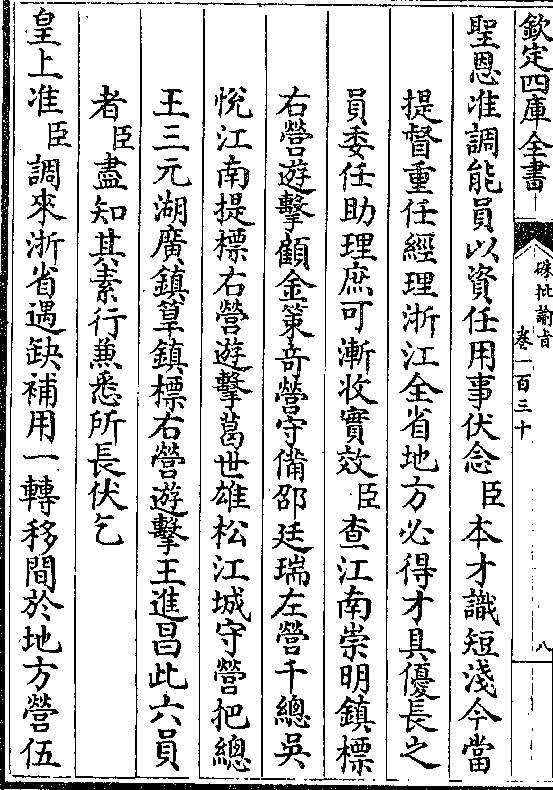 欽定四庫全書
硃批諭旨
卷一百三十
八
聖恩准調能員以資任用事伏念臣本才識短淺今當
提督重任經理浙江全省地方必得才具優長之
員委任助理庶可漸收實效臣查江南崇明鎮標
右營遊擊顧金策竒營守備邵廷瑞左營千總吳
悅江南提標右營遊擊葛世雄松江城守營把總
王三元湖廣鎮筸鎮標右營遊擊王進昌此六員
者臣盡知其素行兼悉所長伏乞
皇上准臣調來浙省遇缺補用一轉移間於地方營伍